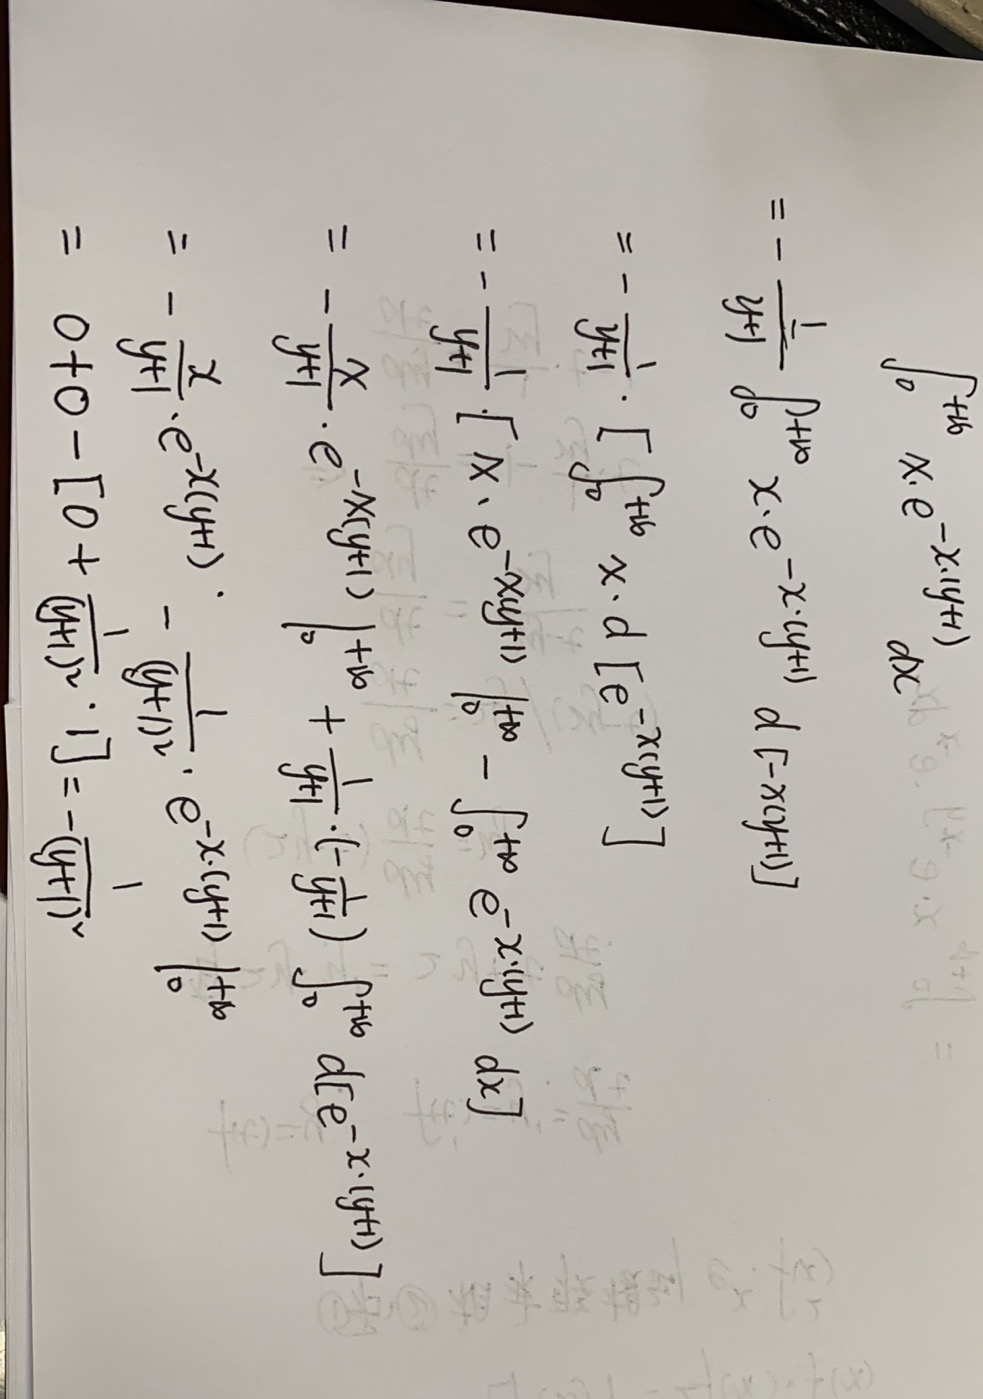 ∫₀^{+∞} x·e^{-x·(y+1)} dx
= - \frac{1}{y+1} ∫₀^{+∞} x·e^{-x·(y+1)} d[-x(y+1)]
= - \frac{1}{y+1}·[∫₀^{+∞} x·d[e^{-x(y+1)}]
= - \frac{1}{y+1}·[x·e^{-x(y+1)} |₀^{+∞} - ∫₀^{+∞} e^{-x·(y+1)} dx]
= - \frac{x}{y+1}·e^{-x(y+1)} |₀^{+∞} + \frac{1}{y+1}·(-\frac{1}{y+1}) ∫₀^{+∞} d[e^{-x·(y+1)}]
= - \frac{x}{y+1}·e^{-x(y+1)}· - \frac{1}{(y+1)²}·e^{-x·(y+1)} |₀^{+∞}
= 0+0-[0+\frac{1}{(y+1)²}·1] = -\frac{1}{(y+1)²}